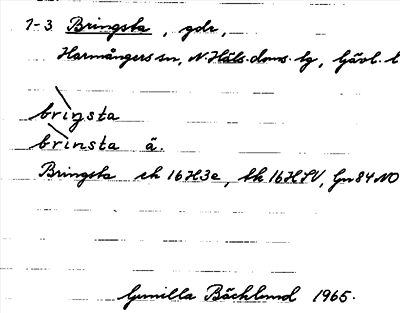 1-3 Bringsta, gdr,
Harmångers sn, N. Häls. doms. lg, Gävl. l
briŋsta
brinsta ä.
Bringsta ek 16H3e, hk 16H SV, Gn 84 NO
Gunilla Bäcklund 1965.